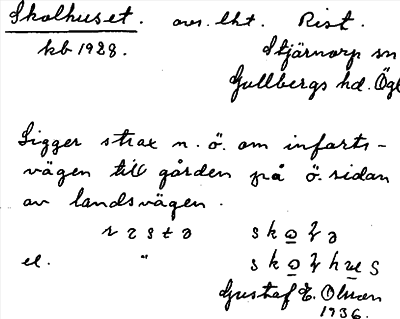 Skolhuset. avs. lht. Rist.
kb 1928. Stjärnorp sn
Gullbergs hd. Ögl
Ligger strax n.ö. om infarts-
vägen till gården på ö. sidan
av landsvägen.
el. "
Gustaf E. Olsson
1936.